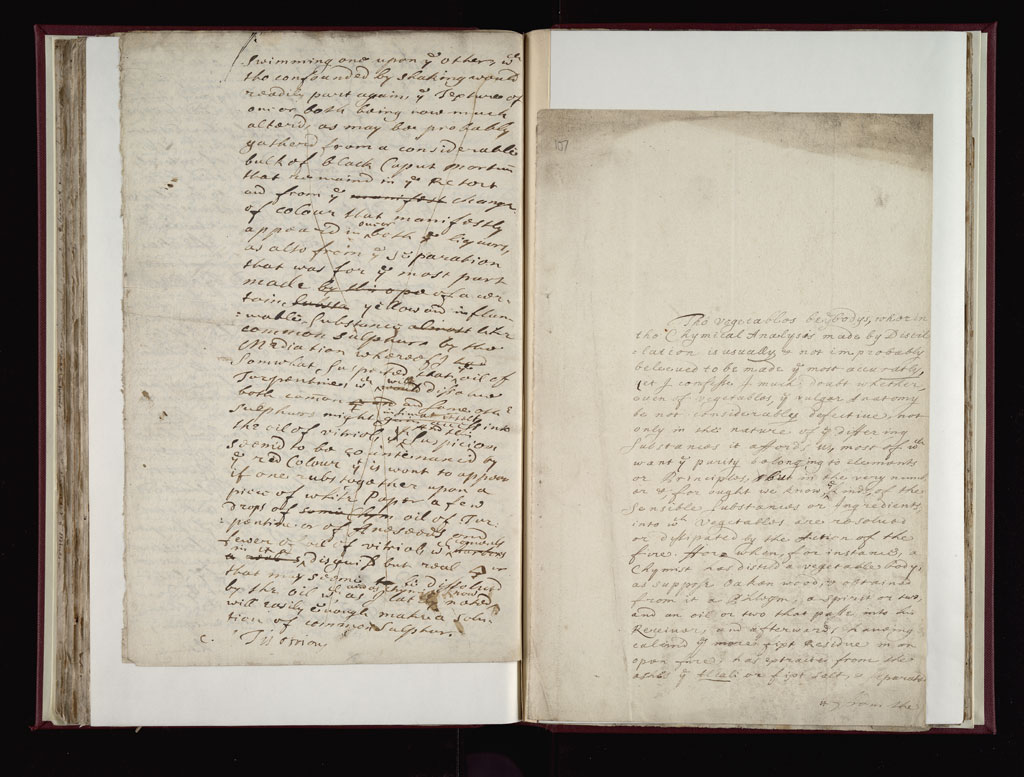 swimming one upon yᵉ other, wᶜʰ
tho confounded by shaking would
readily part again, yᵉ Texture of
one or both being now much
alterd, as may be probably
gatherd from a considerable
bulk of black Caput mortuū
that remaind in yᵉ Retort
and from yᵉ manifest change
of colour that manifestly
appeard in both yᵉ liquors,
as also from yᵉ separation
that was for yᵉ most part
made by this ope of a cer-
tain yellow and inflam-
:mable Substance almost like
common sulphur by the
Mediation whereof I had
somwhat suspected that oil of
Turpentine wᶜʰ will dissolve
both common and some othᵉʳ
sulphurs might into
the oil of vitriol, wᶜʰ suspicion
seemd to be countenanced by
yᵉ red Colour yᵗ is wont to appear
if one rubs together upon a
piece of white Paper a few
drops of some chym oil of Tur-
pentine or of Aneseeds and
fewer or oil of vitriol wᶜʰ
in it self disguisd but real
that may seeme to be dissolved
by the oil wᶜʰ as I lately
will easily enough make a solu-
tion of common Sulphur.
C.
157
The Vegetables be yᵉ bodys, where in
the Chymical Analysis made by Distil
:lation is usually & not improbably
beleeved to be made yᵉ most accurately,
yet I confess I much doubt whether
even of Vegetables, yᵉ vulgar Anatomy
be not considerably defective, not
only in the nature of yᵉ differing
Substances it affords us, most of wᶜʰ
want yᵉ purity belonging to elements
or Principles, but in the very numb
er & for ought we know, kinds of the
Sensible Substances or Ingredients,
into wᶜʰ Vegetables are resolved
or dissipated by the Action of the
fire. Here when, for instance, a
Chymist has distild a vegetable body,
as suppose Oaken wood, & obtained
from it a Phlegm, a Spirit or two,
and an oil or two that passe into his
Receiver, and afterwards having
calcind yᵉ more fixt Residue in an
open fire, has extracted from the
ashes yᵉ Alcali or fixt salt, & separat
from the